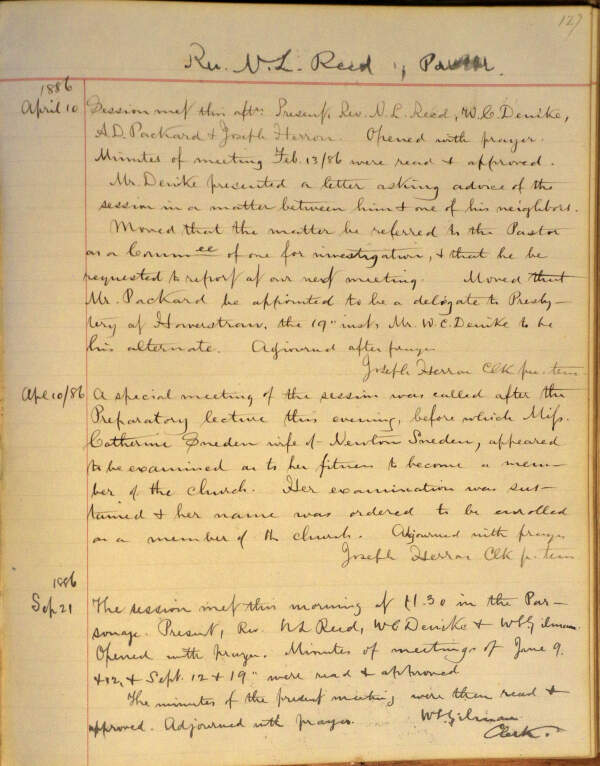 127
Rev. N. L. Reed, Pastor.
1886
April 10 Session met this aftn. Present, Rev. N. L. Reed, W. C. Denike,
A. D. Packard & Joseph Herron. Opened with prayer.
Minutes of meeting Feb. 13/86 were read & approved.
Mr. Denike presented a letter asking advice of the
session in a matter between him & one of his neighbors.
Moved that the matter be referred to the Pastor
as a Commee of one for investigation, & that he be
requested to report at our next meeting. Moved that
Mr. Packard be appointed to be a delegate to Presby-
tery at Haverstraw, the 19" inst. Mr. W. C. Denike to be
his alternate. Adjourned after prayer
Joseph Herron Clk pro. tem
Apl 10/86 A special meeting of the session was called after the
Preparatory lecture this evening, before which Miss.
Catherine Sneden wife of Newton Sneden, appeared
to be examined as to her fitness to become a mem-
ber of the church. Her examination was sus-
tained & her name was ordered to be enrolled
as a member of th church. Adjourned with prayer
Joseph Herron Clk p. tem
1886
Sep. 21 The session met this morning at 11.30 in the Par-
sonage. Present, Rev. N L Reed, W C Denike & W S Gilman.
Opened with prayer. Minutes of meetings of June 9.
& 12, & Sept. 12 & 19" were read & approved
The minutes of the present meeting were then read &
approved. Adjourned with prayer. W S Gilman
Clerk.